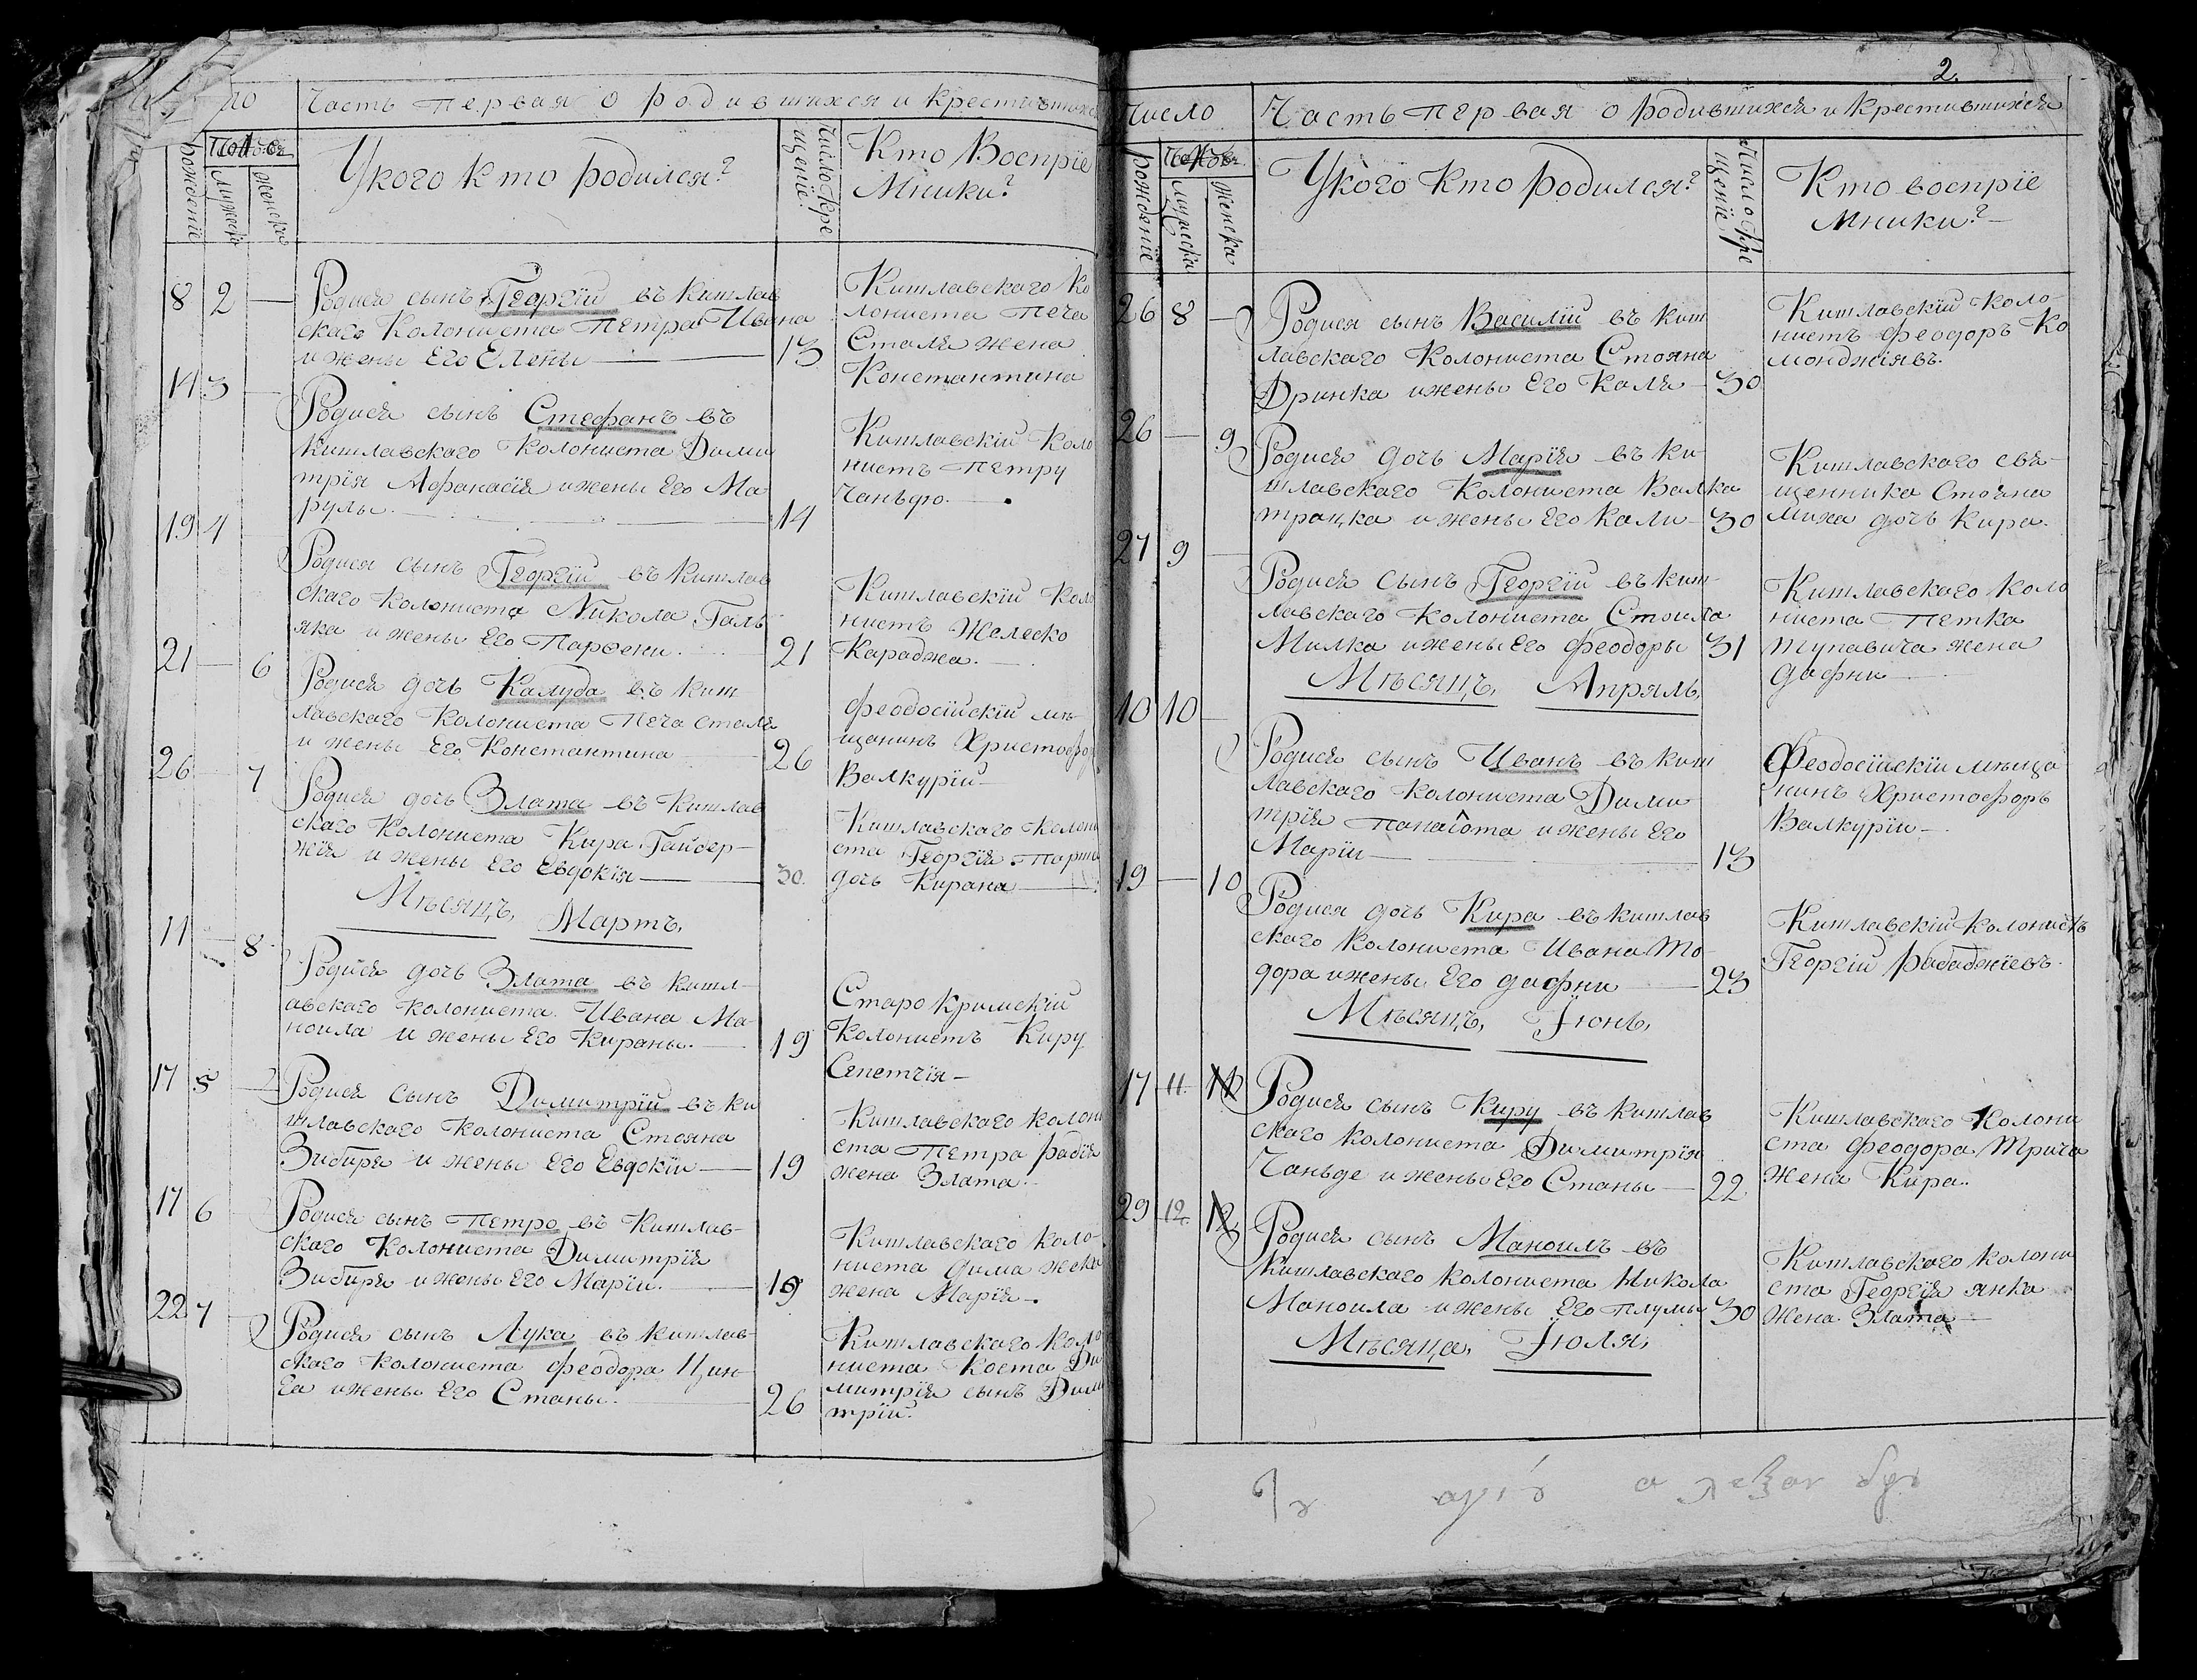 Часть первая о родившихся и крестившихся
рожденіе
мужеска
женска
Укого кто родился?
число кре
щеніе
Кто Воспріе
мники?
8 2 —
Родися сынъ Георгій въ Кишлав
скаго Колониста Петра Ивана
и жены Его Елены
13
Кишлавскаго Ко
лониста Печа
Сталя жена
Константина
14 3 —
Родися сынъ Стефанъ въ
Кишлавскаго Колониста Дими
трія Афанасія и жены Его Ма
рулы.
14
Кишлавскій Коло
нистъ Петру
Чаньдо.
19 4
Родися сынъ Георгій въ Кишлав
скаго Колониста Никола Галь
яка и жены Его Парѳени.
21
Кишлавскій Коло
нистъ Желеско
Караджа.
21 — 6
Родися дочь Калуда въ Киш
лавскаго Колониста Печа Сталя
и жены Его Константина
26
Феодосійскій мѣ
щанинъ Христофор
Валкурій
26 — 7
Родися дочь Злата въ Кишлав
скаго Колониста Кира Гайдер
жія и жены Его Евдокія
30.
Кишлавскаго Колони
ста Георгія
дочь Кирана
Мѣсяцъ, Мартъ,
11 — 8
Родися дочь Злата въ Кишл
авскаго Колониста Ивана Ма
ноила и жены Его Кираны.
19
Старо Кримскій
Колонистъ Киру
Сепетчія
17 5 —
Родися сынъ Димитрій въ Ки
шлавскаго Колониста Стояна
Зибиря и жены Его Евдокіи
19
Кишлавскаго Колони
ста Петра Радія
жена Злата.
17 6
Родися сынъ Петро въ Кишлав
скаго Колониста Димитрія
Зибиря и жены Его Маріи.
19
Кишлавскаго Коло
ниста Дима
жена Марія.
22 7 —
Родися сынъ Лука въ Кишлав
скаго Колониста Феодора Цин
га и жены Его Станы.
26
Кишлавскаго Коло
ниста Коста Ди
митрія сынъ Дими
трій.
2.
Число
Часть первая о родившихся и крестившихся
рожденіе
мужеска
женска
Укого кто родился?
число кре
щеніе
Кто воспріе
мники?
26 8 —
Родися сынъ Василій въ Киш
лавскаго Колониста Стояна
Дринка и жены Его Каля
30
Кишлавскій Коло
нистъ Феодоръ Ко
монджіявъ.
26 — 9
Родися дочь Марія въ Ки
шлавскаго Колониста Валка
трацка и жены Его Кали
30
Кишлавскаго свя
щенника Стояна
Миха дочь Кира.
27 9 —
Родися сынъ Георгій въ Киш
лавскаго Колониста Стоила
Милка и жены Его Феодоры
31
Кишлавскаго Коло
ниста Петка
тупавича жена
Дафни
Мѣсяцъ, Апряль,
10 10 —
Родися сынъ Иванъ въ Киш
лавскаго Колониста Дими
трія Панаіота и жены Его
Маріи
13
Феодосійскій мѣща
нинъ Христофоръ
Валкурій
19 — 10
Родися дочь Кира въ Кишлав
скаго Колониста Ивана То
дора и жены Его Дафни
23
Кишлавскій Колонистъ
Георгій Рабаджіевъ.
Мѣсяцъ, Іюнь,
17 11. 11
Родися сынъ Киру въ Кишлав
скаго Колониста Димитрія
Чаньде и жены Его Станы
22
Кишлавскаго Колони
ста Феодора Трича
жена Кира.
29 12. 12
Родися сынъ Маноилъ въ
Кишлавскаго Колониста Никола
Маноила и жены Его Плумы
30
Кишлавскаго Колони
ста Георгія Янка
жена Злата
Мѣсяца, Іюля,